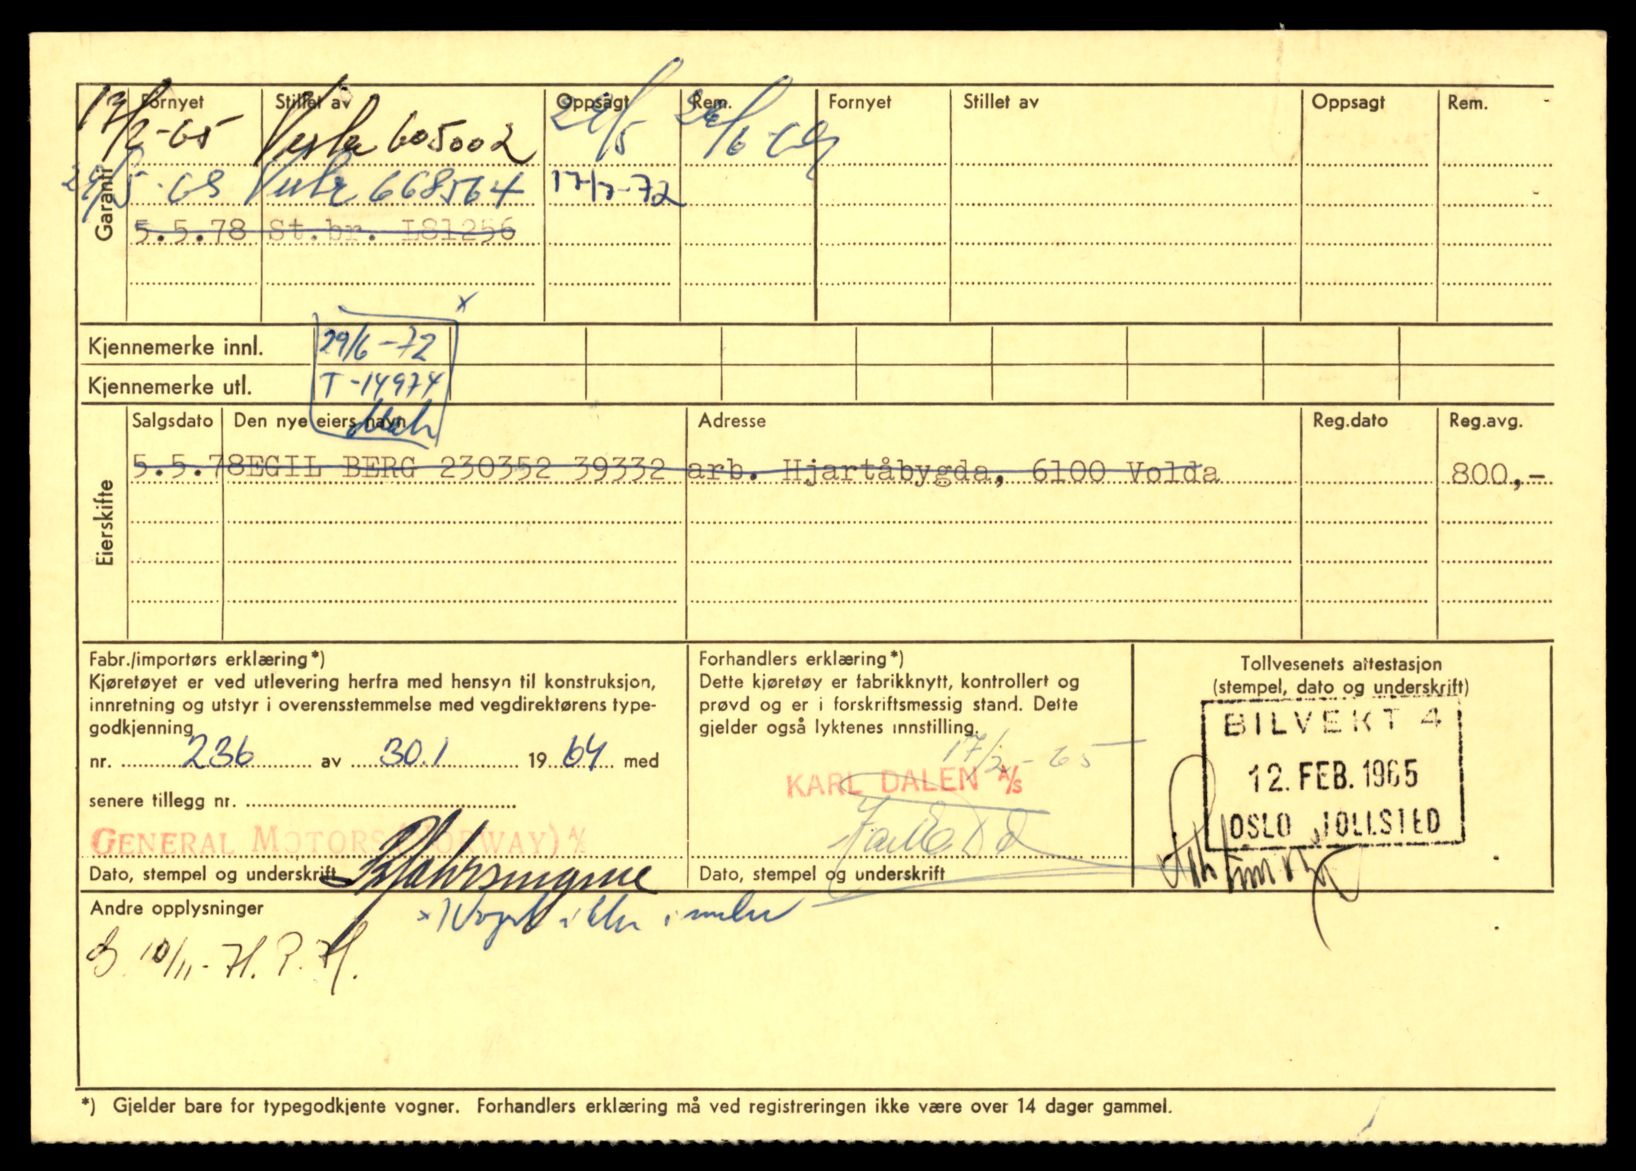 Garanti
Fornyet Stillet av Oppsagt Rem. Fornyet Stillet av Oppsagt Rem.
17/2-65 Vesta 605002 24/5 26/6
29/5-68 Vesta 668564 17/7-72
5.5.78 St.br. L81256
Kjennemerke innl. 29/6-72
Kjennemerke utl. T-14974
Eierskifte
Salgsdato Den nye eiers navn Adresse Reg.dato Reg.avg.
5.5.78 EGIL BERG 230352 39332 arb. Hjartåbygda, 6100 Volda 800,-
Fabr./importørs erklæring*)
Kjøretøyet er ved utlevering herfra med hensyn til konstruksjon,
innretning og utstyr i overensstemmelse med vegdirektørens type-
godkjenning
nr. 236 av 30.1 1964 med
senere tillegg nr.
GENERAL MOTORS (NORWAY) A/S
Dato, stempel og underskrift
Forhandlers erklæring*)
Dette kjøretøy er fabrikknytt, kontrollert og
prøvd og er i forskriftsmessig stand. Dette
gjelder også lyktenes innstilling.
17/2-65
KARL DALEN A/S
Dato, stempel og underskrift
Tollvesenets attestasjon
(stempel, dato og underskrift)
BILVEKT 4
12. FEB. 1965
OSLO TOLLSTED
Andre opplysninger
x) Vogn ikke i
10/11- H.P.H.
*) Gjelder bare for typegodkjente vogner. Forhandlers erklæring må ved registreringen ikke være over 14 dager gammel.